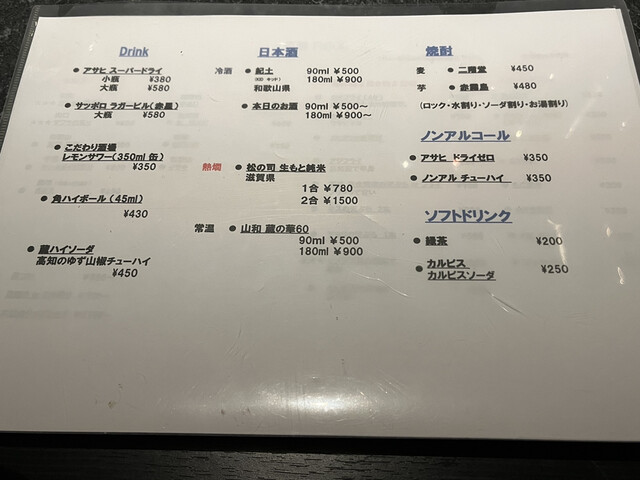 Drink
● アサヒ スーパードライ
小瓶 ¥380
大瓶 ¥580
● サッポロ ラガービル(赤星)
大瓶 ¥580
● こだわり酒場
レモンサワー(350ml 缶)
¥350
● 角ハイボール (45ml)
¥430
● 蔵ハイソーダ
高知のゆず山椒チューハイ
¥450
日本酒
冷酒 ● 紀土 90ml ¥500
(KID キッド) 180ml ¥900
和歌山県
● 本日のお酒 90ml ¥500～
180ml ¥900～
熱燗 ● 松の司 生もと純米
滋賀県
1合 ¥780
2合 ¥1500
常温 ● 山和 蔵の華60
90ml ¥500
180ml ¥900
焼酎
麦 ● 二階堂 ¥450
芋 ● 赤霧島 ¥480
(ロック・水割り・ソーダ割り・お湯割り)
ノンアルコール
● アサヒ ドライゼロ ¥350
● ノンアル チューハイ ¥350
ソフトドリンク
● 緑茶 ¥200
● カルピス ¥250
カルピスソーダ